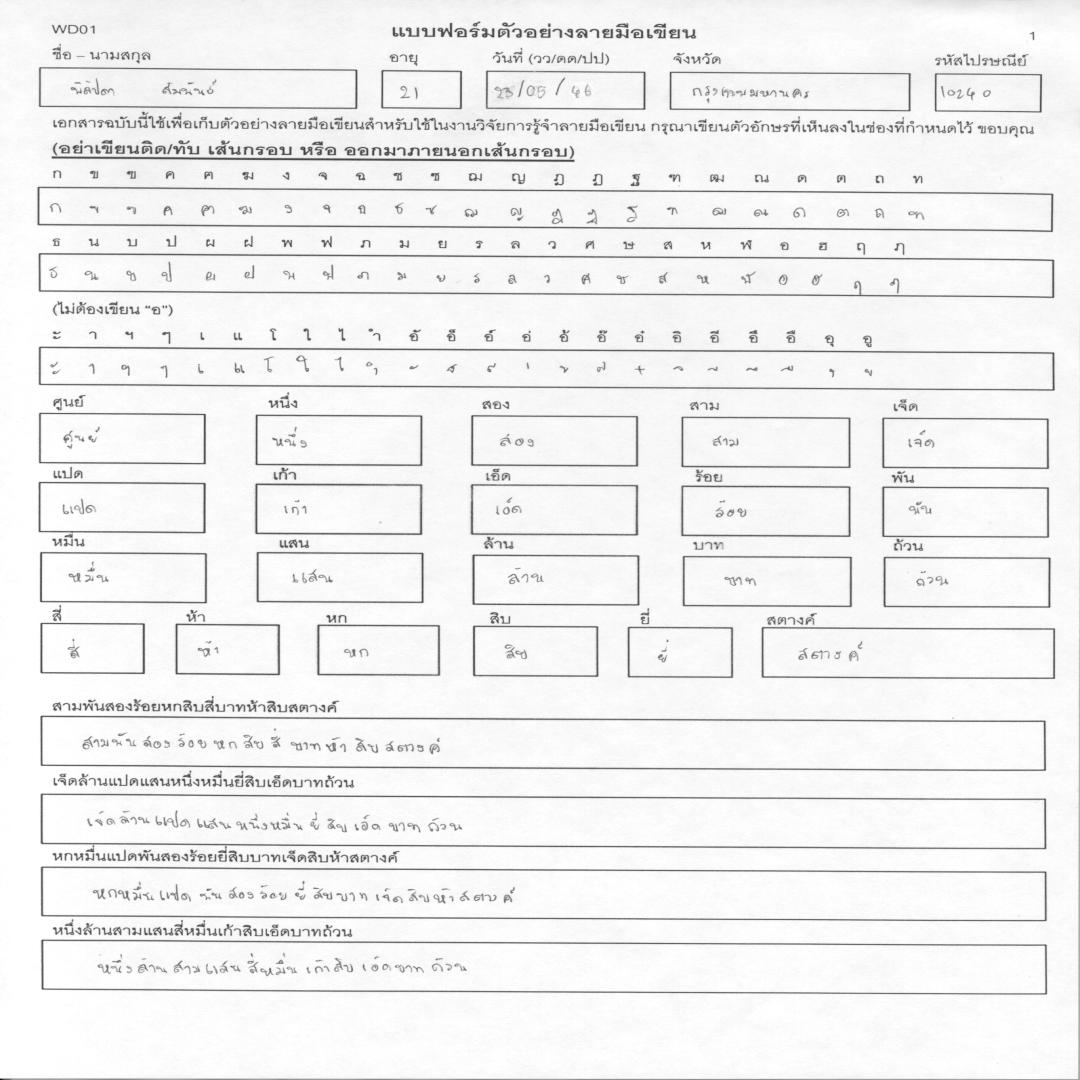 WD01 แบบฟอร์มตัวอย่างลายมือเขียน 1
ชื่อ – นามสกุล อายุ วันที่ (วว/ดด/ปป) จังหวัด รหัสไปรษณีย์
21 23/05/46 กรุงเทพมหานคร 10240
เอกสารฉบับนี้ใช้เพื่อเก็บตัวอย่างลายมือเขียนสำหรับใช้ในงานวิจัยการรู้จำลายมือเขียน กรุณาเขียนตัวอักษรที่เห็นลงในช่องที่กำหนดไว้ ขอบคุณ
(อย่าเขียนติด/ทับ เส้นกรอบ หรือ ออกมาภายนอกเส้นกรอบ)
ก ข ฃ ค ฅ ฆ ง จ ฉ ช ซ ฌ ญ ฎ ฏ ฐ ฑ ฒ ณ ด ต ถ ท
ก ข ฃ ค ฅ ฆ ง จ ฉ ช ซ ฌ ญ ฎ ฏ ฐ ฑ ฒ ณ ด ต ถ ท
ธ น บ ป ผ ฝ พ ฟ ภ ม ย ร ล ว ศ ษ ส ห ฬ อ ฮ ฤ ฦ
ธ น บ ป ผ ฝ พ ฟ ภ ม ย ร ล ว ศ ษ ส ห ฬ อ ฮ ฤ ฦ
(ไม่ต้องเขียน “อ”)
ะ า ฯ ๆ เ แ โ ใ ไ ำ อั อ็ อ์ อ่ อ้ อ๊ อ๋ อิ อี อึ อื อุ อู
ะ า ฯ ๆ เ แ โ ใ ไ ำ ั ็ ์ ่ ้ ๊ ๋ ิ ี ึ ื ุ ู
ศูนย์ หนึ่ง สอง สาม เจ็ด
ศูนย์ หนึ่ง สอง สาม เจ็ด
แปด เก้า เอ็ด ร้อย พัน
แปด เก้า เอ็ด ร้อย พัน
หมื่น แสน ล้าน บาท ถ้วน
หมื่น แสน ล้าน บาท ถ้วน
สี่ ห้า หก สิบ ยี่ สตางค์
สี่ ห้า หก สิบ ยี่ สตางค์
สามพันสองร้อยหกสิบสี่บาทห้าสิบสตางค์
สามพัน สอง ร้อย หก สิบ สี่ บาท ห้า สิบ สตางค์
เจ็ดล้านแปดแสนหนึ่งหมื่นยี่สิบเอ็ดบาทถ้วน
เจ็ด ล้าน แปด แสน หนึ่งหมื่น ยี่ สิบ เอ็ด บาท ถ้วน
หกหมื่นแปดพันสองร้อยยี่สิบบาทเจ็ดสิบห้าสตางค์
หกหมื่น แปด พัน สอง ร้อย ยี่ สิบบาท เจ็ด สิบห้า สตางค์
หนึ่งล้านสามแสนสี่หมื่นเก้าสิบเอ็ดบาทถ้วน
หนึ่ง ล้าน สาม แสน สี่หมื่น เก้า สิบ เอ็ด บาท ถ้วน